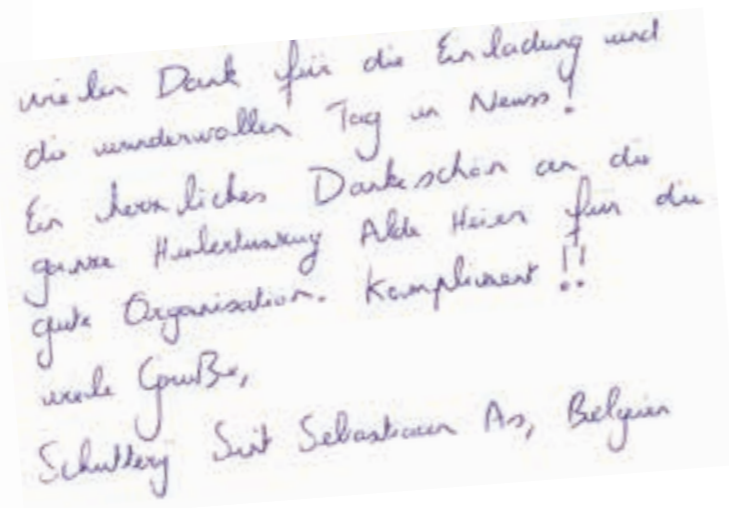 vielen Dank für die Einladung und
die wunderwollen Tag in Neuss!
Ein herzliches Dankeschön an die
ganze Hubertuszug Alde Heien fur die
gute Organisation. Kompliment!!
viele Gruße,
Schuttery Sint Sebastiaan As, Belgien